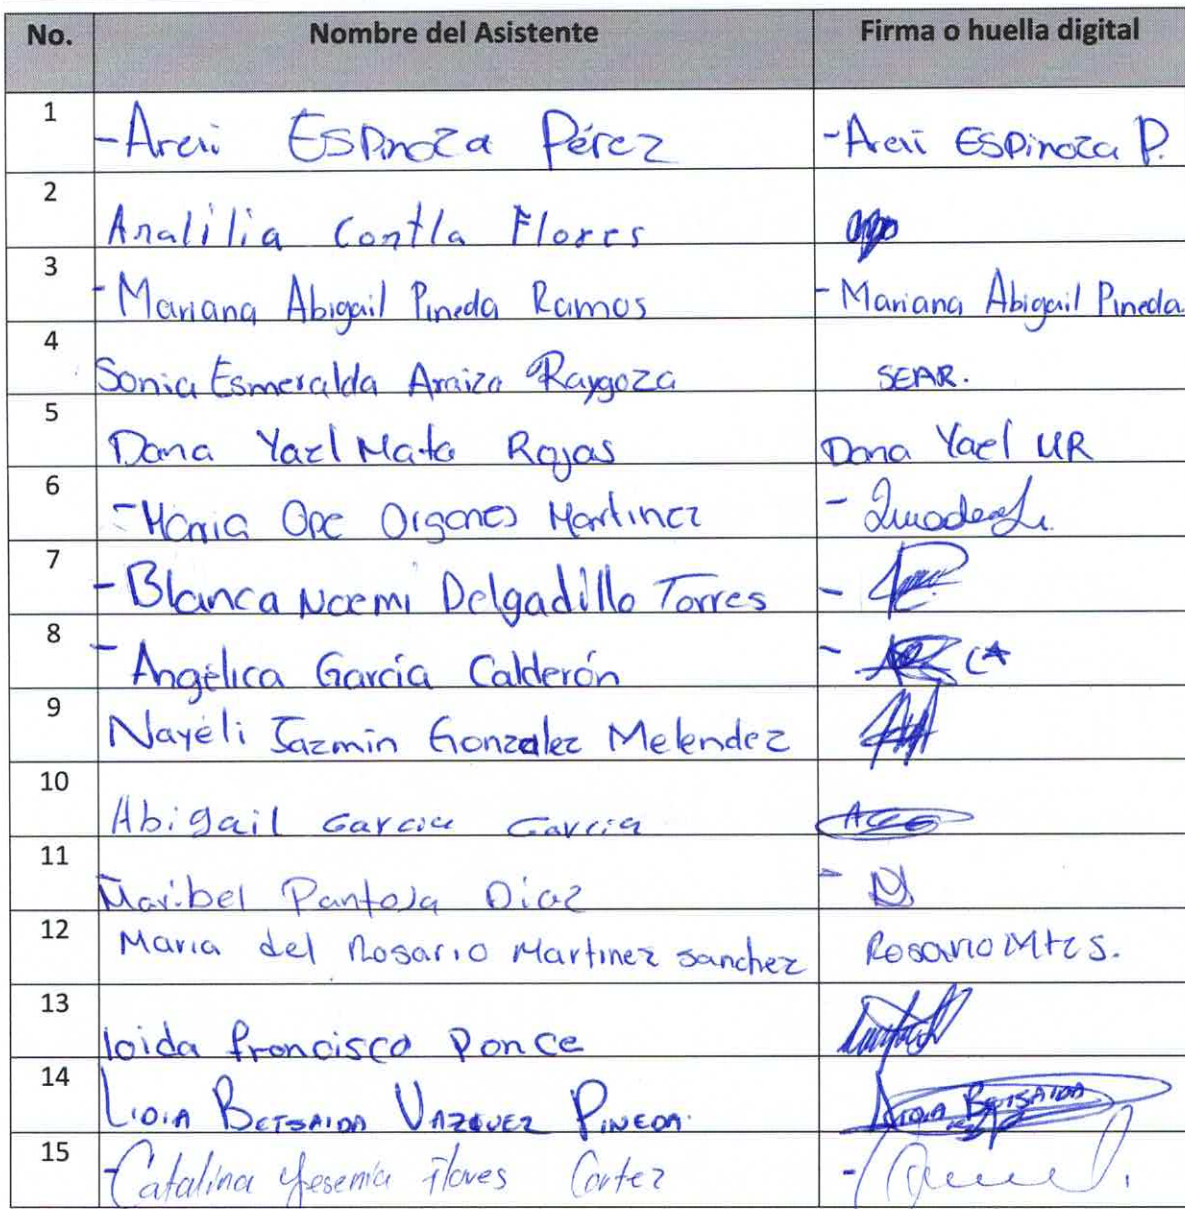 No. Nombre del Asistente Firma o huella digital
1 -Areii ESPinoza Pérez -Areii ESPinoza P.
2 Analilia Contla Flores
3 -Mariana Abigail Pineda Ramos -Mariana Abigail Pineda.
4 Sonia Esmeralda Araiza Raygoza SEAR.
5 Dana Yael Mata Rojas Dana Yael UR
6 -Maria Martinez -
7 -Blanca Noemi Delgadillo Torres -
8 -Angélica García Calderón -
9 Nayéli Jazmin Gonzalez Melendez
10 Abigail Garcia Garcia
11 Maribel Pantoja Diaz -
12 Maria del Rosario Martinez sanchez Rosario Mtz S.
13 loida francisco Ponce
14 LIDIA BETSAIDA VAZQUEZ PINEDA. LIDIA BETSAIDA
15 -Catalina Yesenia flores Cortez -